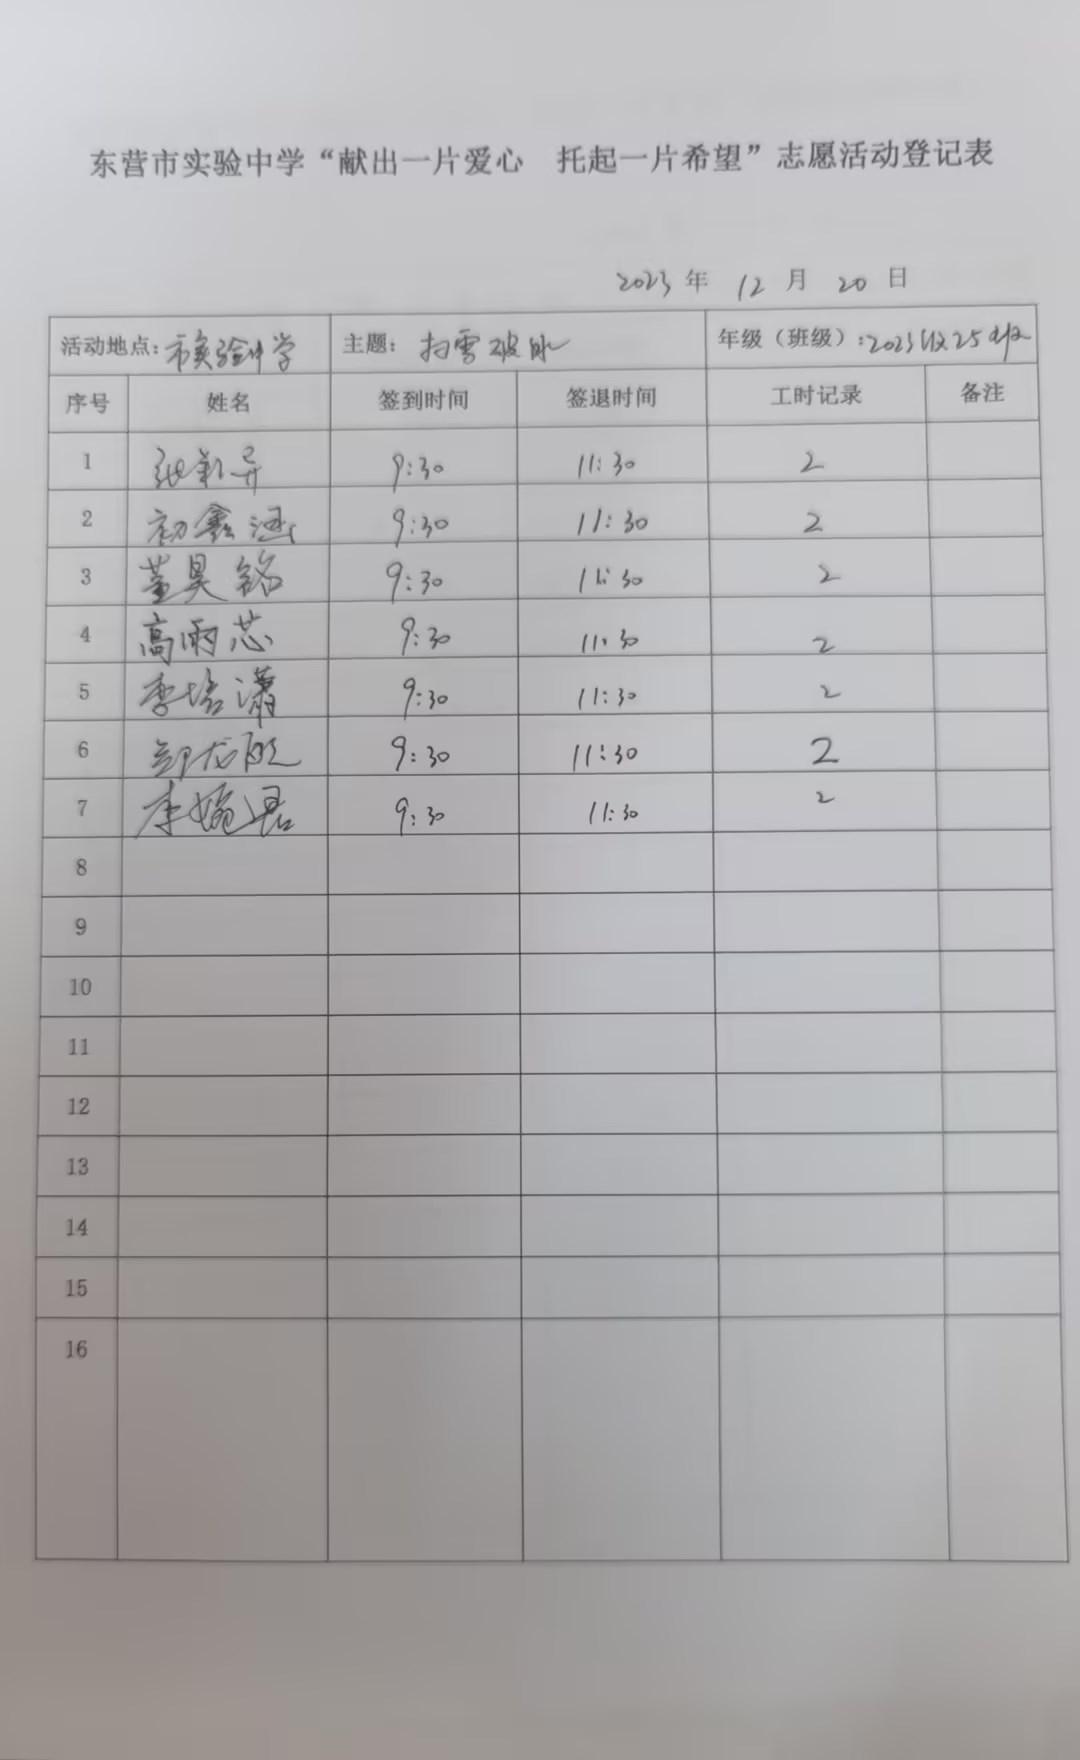 东营市实验中学“献出一片爱心 托起一片希望”志愿活动登记表
2023 年 12 月 20 日
活动地点: 市实验中学 主题: 扫雪破冰 年级（班级）: 2023级25班
序号 姓名 签到时间 签退时间 工时记录 备注
1 张 异 9:30 11:30 2
2 初鑫涵 9:30 11:30 2
3 董昊铭 9:30 11:30 2
4 高雨芯 9:30 11:30 2
5 李培潇 9:30 11:30 2
6 9:30 11:30 2
7 李婉君 9:30 11:30 2
8
9
10
11
12
13
14
15
16